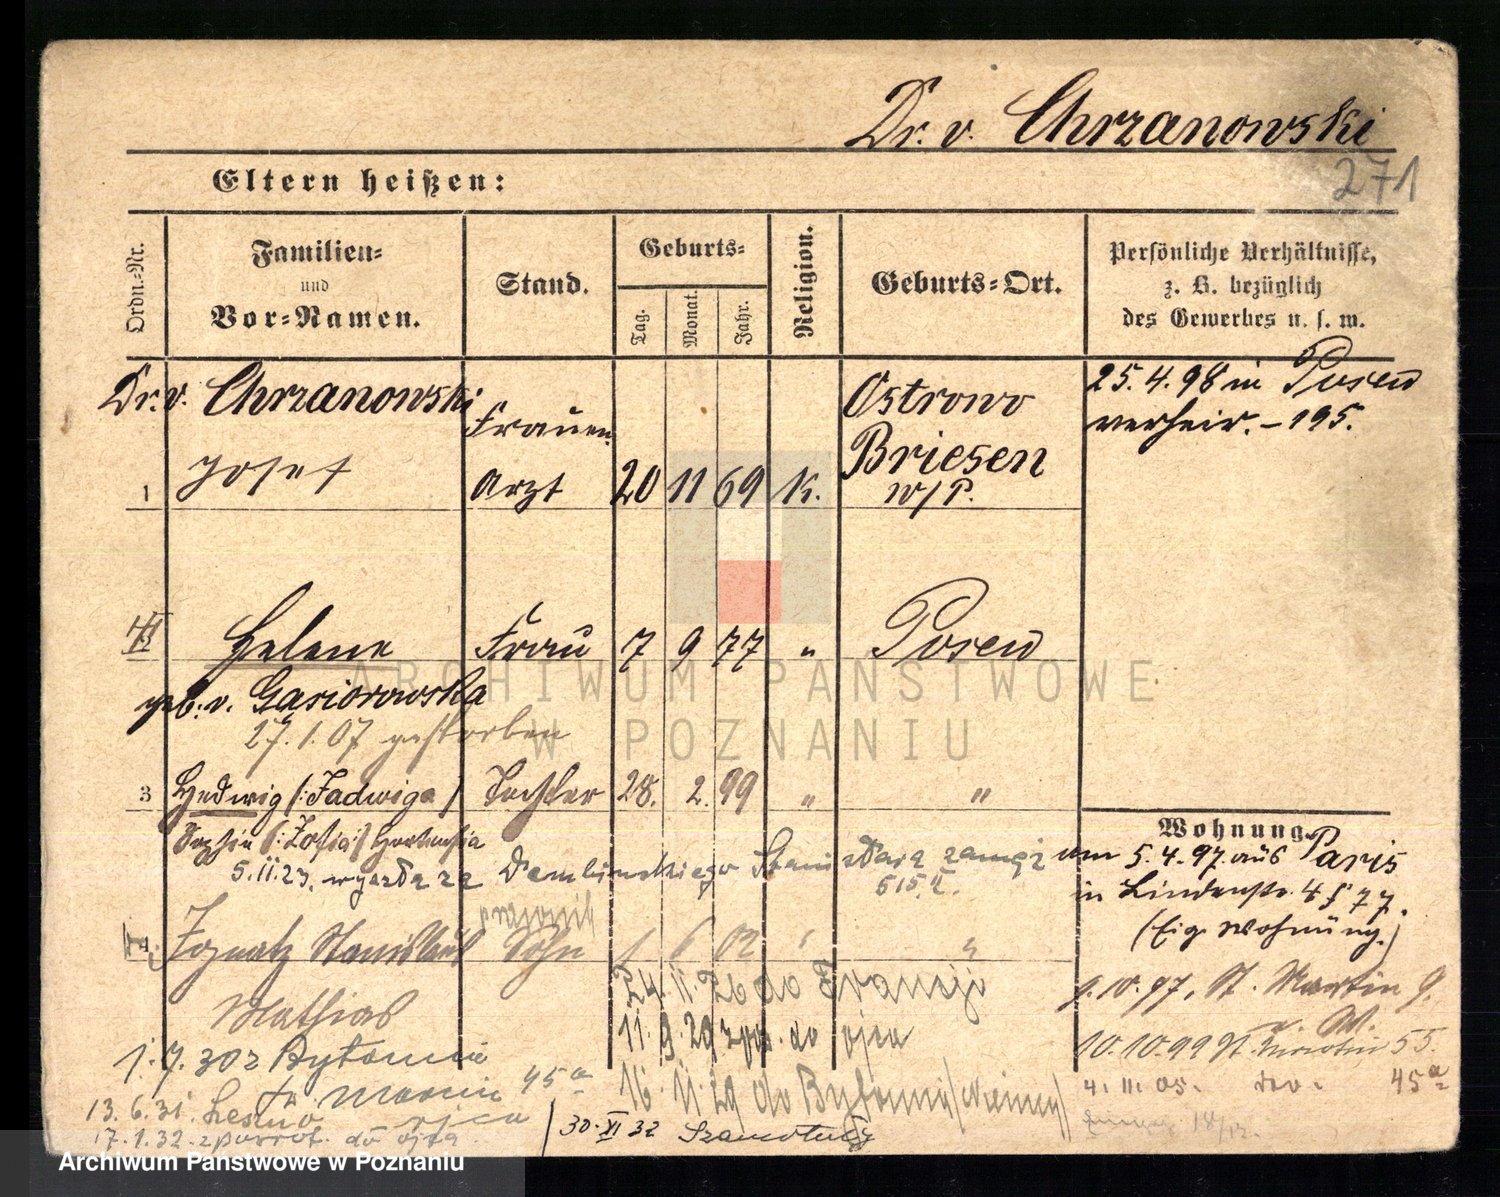 Dr. v. Chrzanowski
271
Eltern heißen:
Ordn.-Nr.
Familien-
und
Vor-Namen.
Stand.
Geburts-
Tag.
Monat.
Jahr.
Religion.
Geburts-Ort.
Persönliche Verhältnisse,
z. B. bezüglich
des Gewerbes u. s. w.
Dr. v. Chrzanowski
Josef
1
Frauen
Arzt
20 11 69 K.
Ostrowo
Briesen
W/P.
25.4.98 in Posen
verheir. – 195.
Helene Frau 7 9 77 " Posen
geb. v. Gasiorowska
27.1.07 gestorben
3 Hedwig (: Jadwiga) Tochter 28. 2. 99 " "
Sophie (: Zofia :) Hortensia
5.II.23. wyszła za Dembińskiego Stanisława
Wohnung.
am 5.4.97 aus Paris
in Lindenstr. 4 b 77.
(Eig. Wohnung.)
Ignatz Stanislaus Sohn 1 6 02 " "
Mathias
24. II. 26 do Francji
11. 9. 29 do ojca
16. II. 29 do Bytomia
1.10.97, St. Martin 9.
v. W.
10.10.99 St. Martin 55.
4. III. 05. do. 45a
1.7.30 z Bytomia
św. Marcin 45a
13.6.31. Leszno
17.1.32. z powrot. do ojca
30.XI 32 Szamotuły
ARCHIWUM PAŃSTWOWE
W POZNANIU
Archiwum Państwowe w Poznaniu